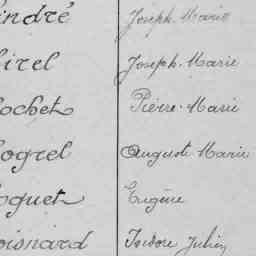 indré Joseph Marie
irel Joseph. Marie
ochet Pierre. Marie
ogrel Auguste Marie
oguet Eugène
oisnard Isidore Julien